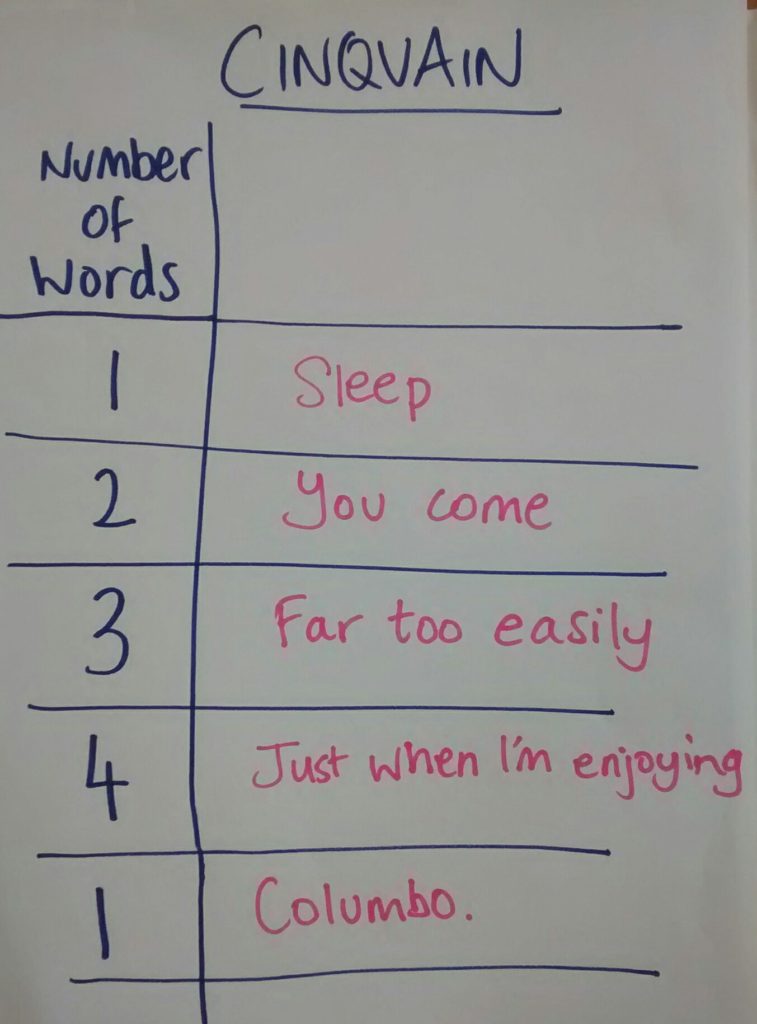 CINQUAIN
Number
of
Words
1 Sleep
2 You come
3 Far too easily
4 Just when I'm enjoying
1 Columbo.